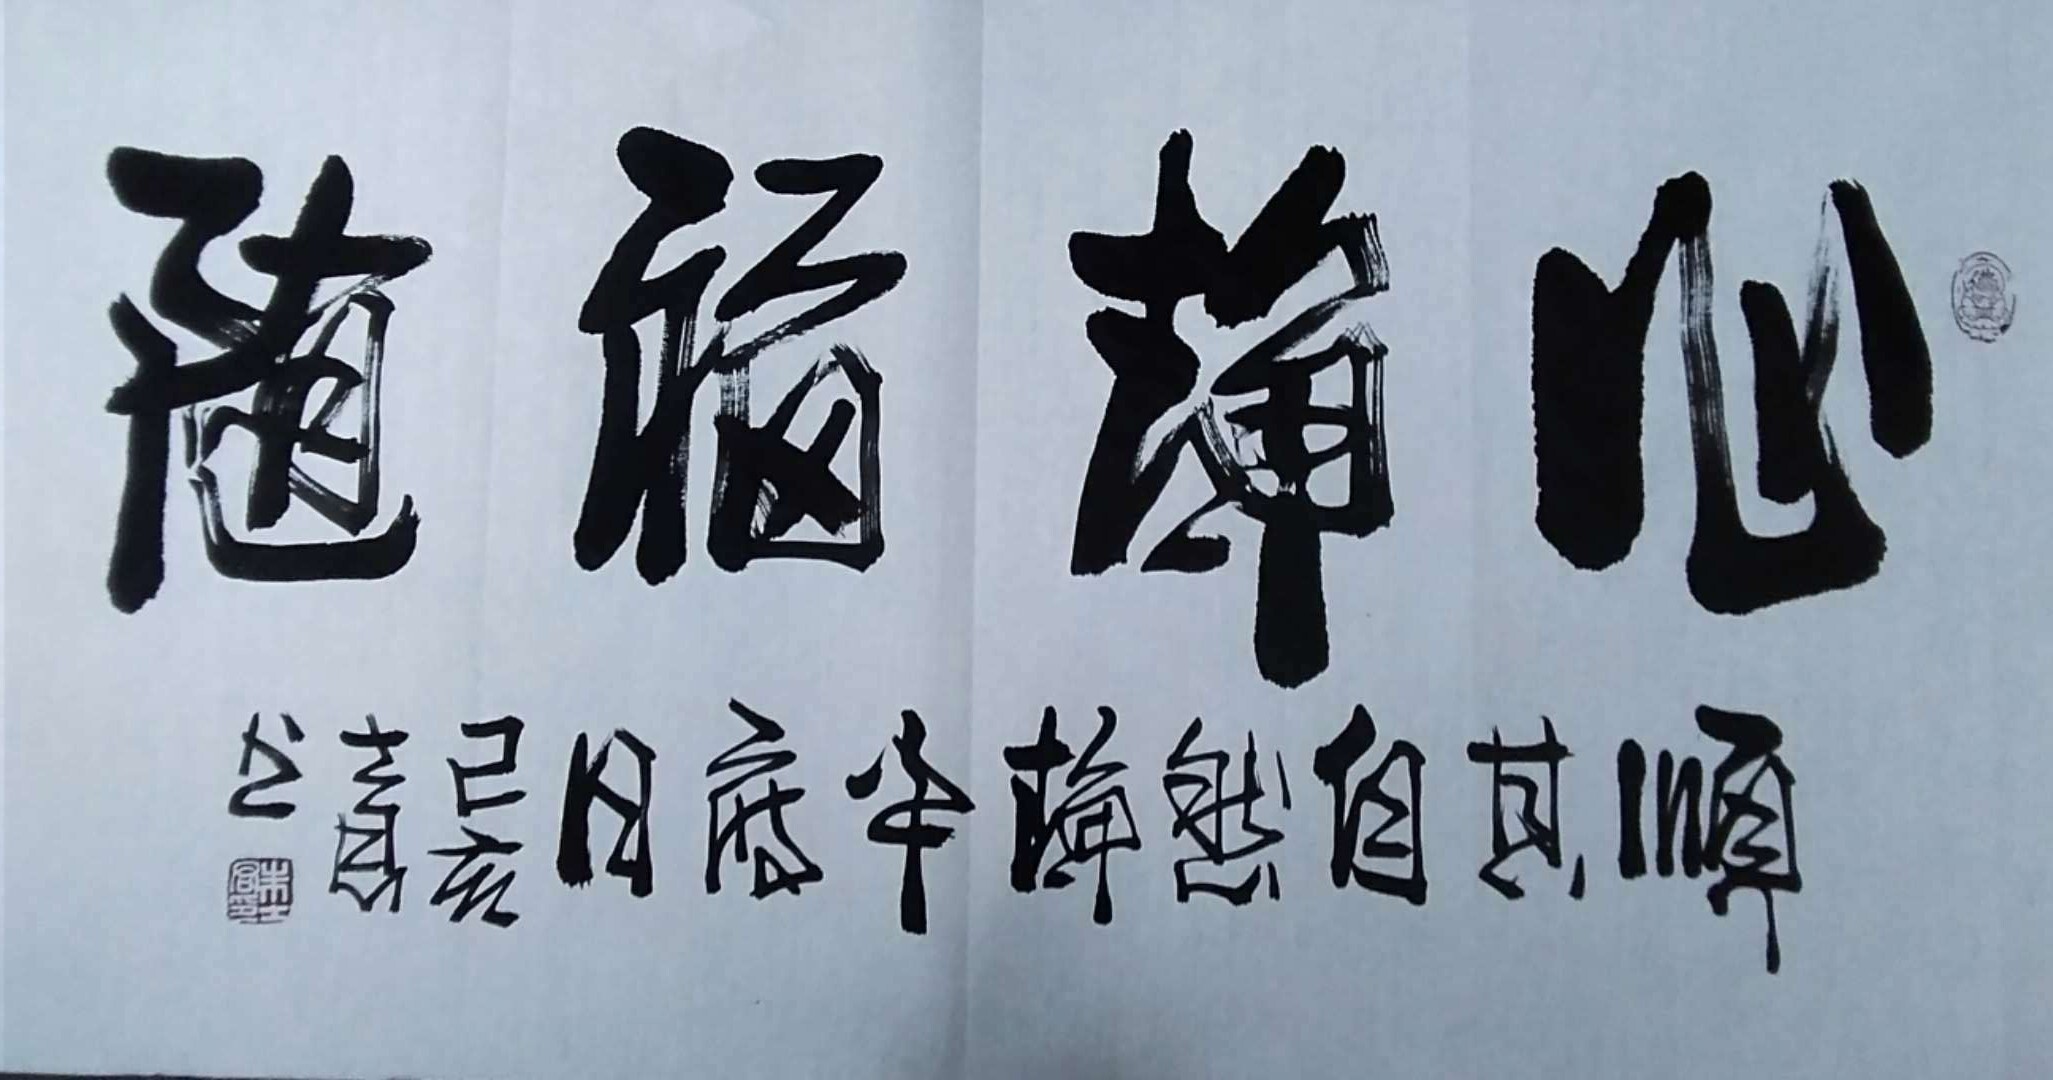 心静福随
順其自然静平度日 己亥 书